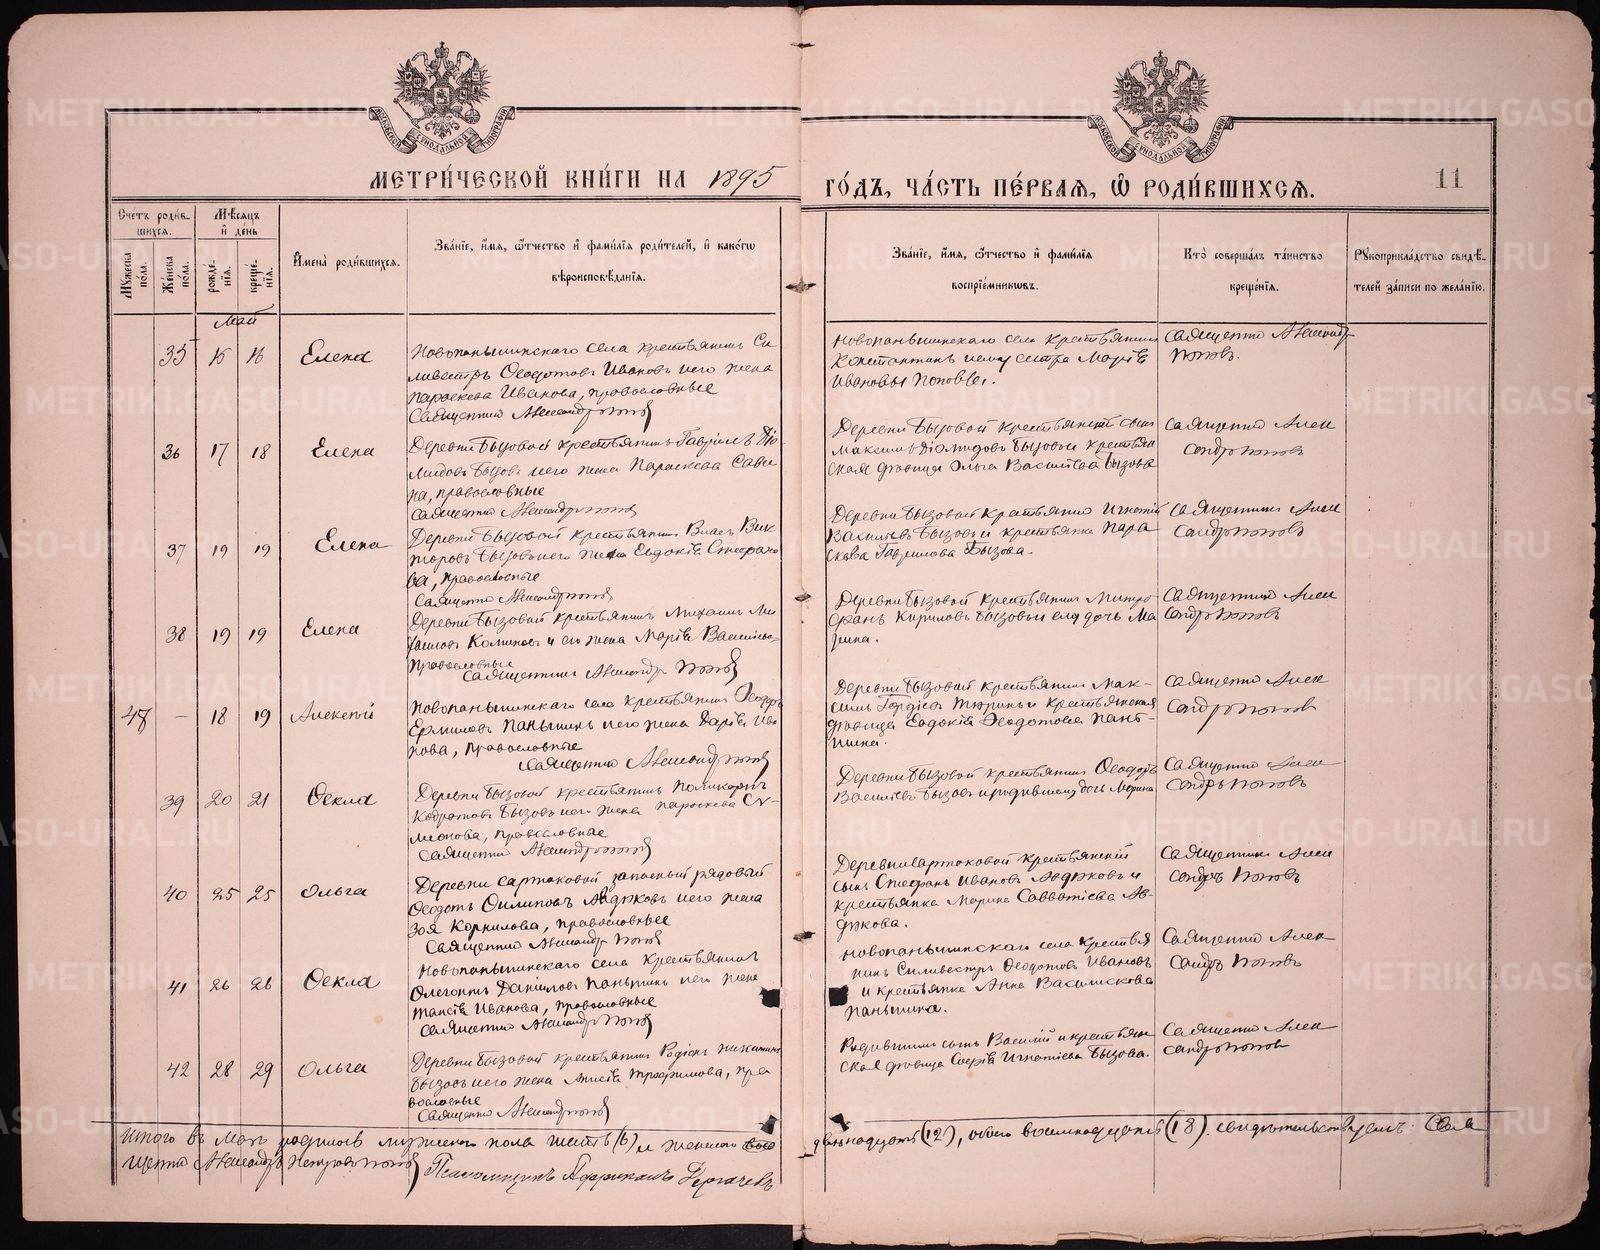 МЕТРИ́ЧЕСКОЙ КНИ́ГИ НА 1895
ГО́ДЪ, ЧА́СТЬ ПЕ́РВАЯ, Ѡ РОДИ́ВШИХСЯ.
11
Сче́тъ роди́в-
шихся.
Мѣ́сяцъ
и҆ де́нь
Мꙋ́жеска
по́ла.
Же́нска
по́ла.
рожде́-
нїѧ.
креще́-
нїѧ.
И҆мена̀ роди́вшихся.
Зва́нїе, и҆́мя, ѻ҆́тчество и҆ фами́лїя роди́телей, и҆ како́гѡ
вѣроисповѣ́данїя.
Зва́нїе, и҆́мя, ѻ҆́тчество и҆ фами́лїя
воспрїе́мникѡвъ.
Кто̀ соверша́лъ та́инство
креще́нїя.
Рꙋкоприкла́дство свидѣ́-
телей за́писи по жела́нїю.
Май
35 15 16 Елена
Новопаньшинскаго села крестьянинъ Си-
ливестръ Ѳеодотовъ Ивановъ и его жена
Параскева Иванова, православные
Священникъ Александръ Поповъ
Новопаньшинскаго села крестьянинъ
Константинъ сестра Марія
Ивановы Поповы.
Священникъ Александръ
Поповъ.
36 17 18 Елена
Деревни Бызовой крестьянинъ Гавріилъ Діо-
мидовъ Бызовъ и его жена Параскева Сави-
на, православные
Священникъ Александръ Поповъ
Деревни Бызовой крестьянскій сынъ
Максимъ Діомидовъ Бызовъ и крестьян-
ская дѣвица Ольга Васильева Бызова
Священникъ Алек
сандръ Поповъ
37 19 19 Елена
Деревни Бызовой крестьянинъ Власъ Вик-
торовъ Бызовъ и его жена Евдокія Стефано-
ва, православные
Священникъ Александръ Поповъ
Деревни Бызовой крестьянинъ Игнатій
Васильевъ Бызовъ и крестьянка Пара-
скева Гаврилова Бызова.
Священникъ Алек
сандръ Поповъ
38 19 19 Елена
Деревни Бызовой крестьянинъ Михаилъ Ми-
хаиловъ и его жена Марія Васильева
православные
Священникъ Александръ Поповъ
Деревни Бызовой крестьянинъ Митро-
фанъ Кириловъ Бызовъ и его дочь Ма
рина.
Священникъ Алек
сандръ Поповъ
47 - 18 19 Алексѣй
Новопаньшинскаго села крестьянинъ Ѳеодоръ
Ермиловъ Паньшинъ и его жена Дарія Ива-
нова, православные
Священникъ Александръ Поповъ
Деревни Бызовой крестьянинъ Мак-
симъ Гордіевъ и крестьянская
дѣвица Евдокія Ѳеодотова Пань-
шина.
Священникъ Алек
сандръ Поповъ
39 20 21 Ѳекла
Деревни Бызовой крестьянинъ Поликарпъ
Кодратовъ Бызовъ и его жена Параскева Си-
меонова, православные
Священникъ Александръ Поповъ
Деревни Бызовой крестьянинъ Ѳеодотъ
Васильевъ Бызовъ и родившаго дочь Марина
Священникъ Алек
сандръ Поповъ
40 25 25 Ольга
Деревни Сартаковой запасный рядовый
Ѳеодотъ Филиповъ Авдюковъ и его жена
Зоя Корнилова, православные
Священникъ Александръ Поповъ
Деревни Сартаковой крестьянскій
сынъ Стефанъ Ивановъ Авдюковъ и
крестьянка Марина Савватіева Ав-
дюкова.
Священникъ Алек
сандръ Поповъ
41 26 26 Ѳекла
Новопаньшинскаго села крестьянинъ
Данииловъ Паньшинъ и его жена
Иванова, православные
Священникъ Александръ Поповъ
Новопаньшинскаго села крестья
нинъ Силивестръ Ѳеодотовъ Ивановъ
и крестьянка Анна Василискова
Паньшина.
Священникъ Алек
сандръ Поповъ
42 28 29 Ольга
Деревни Бызовой крестьянинъ Родіонъ Никитинъ
Бызовъ и его жена Анисія Трофимова, пра
вославные
Священникъ Александръ Поповъ
Родившихъ сынъ Василій и крестьян-
ская дѣвица Софія Игнатіева Бызова.
Священникъ Алек
сандръ Поповъ
Итого въ маѣ родилось мужескаго пола шесть (6) и женскаго
двѣнадцать (12), обоего восемнадцать (18). свидѣтельствуемъ: Свя
щенникъ Александръ Поповъ Псаломщикъ Африканъ